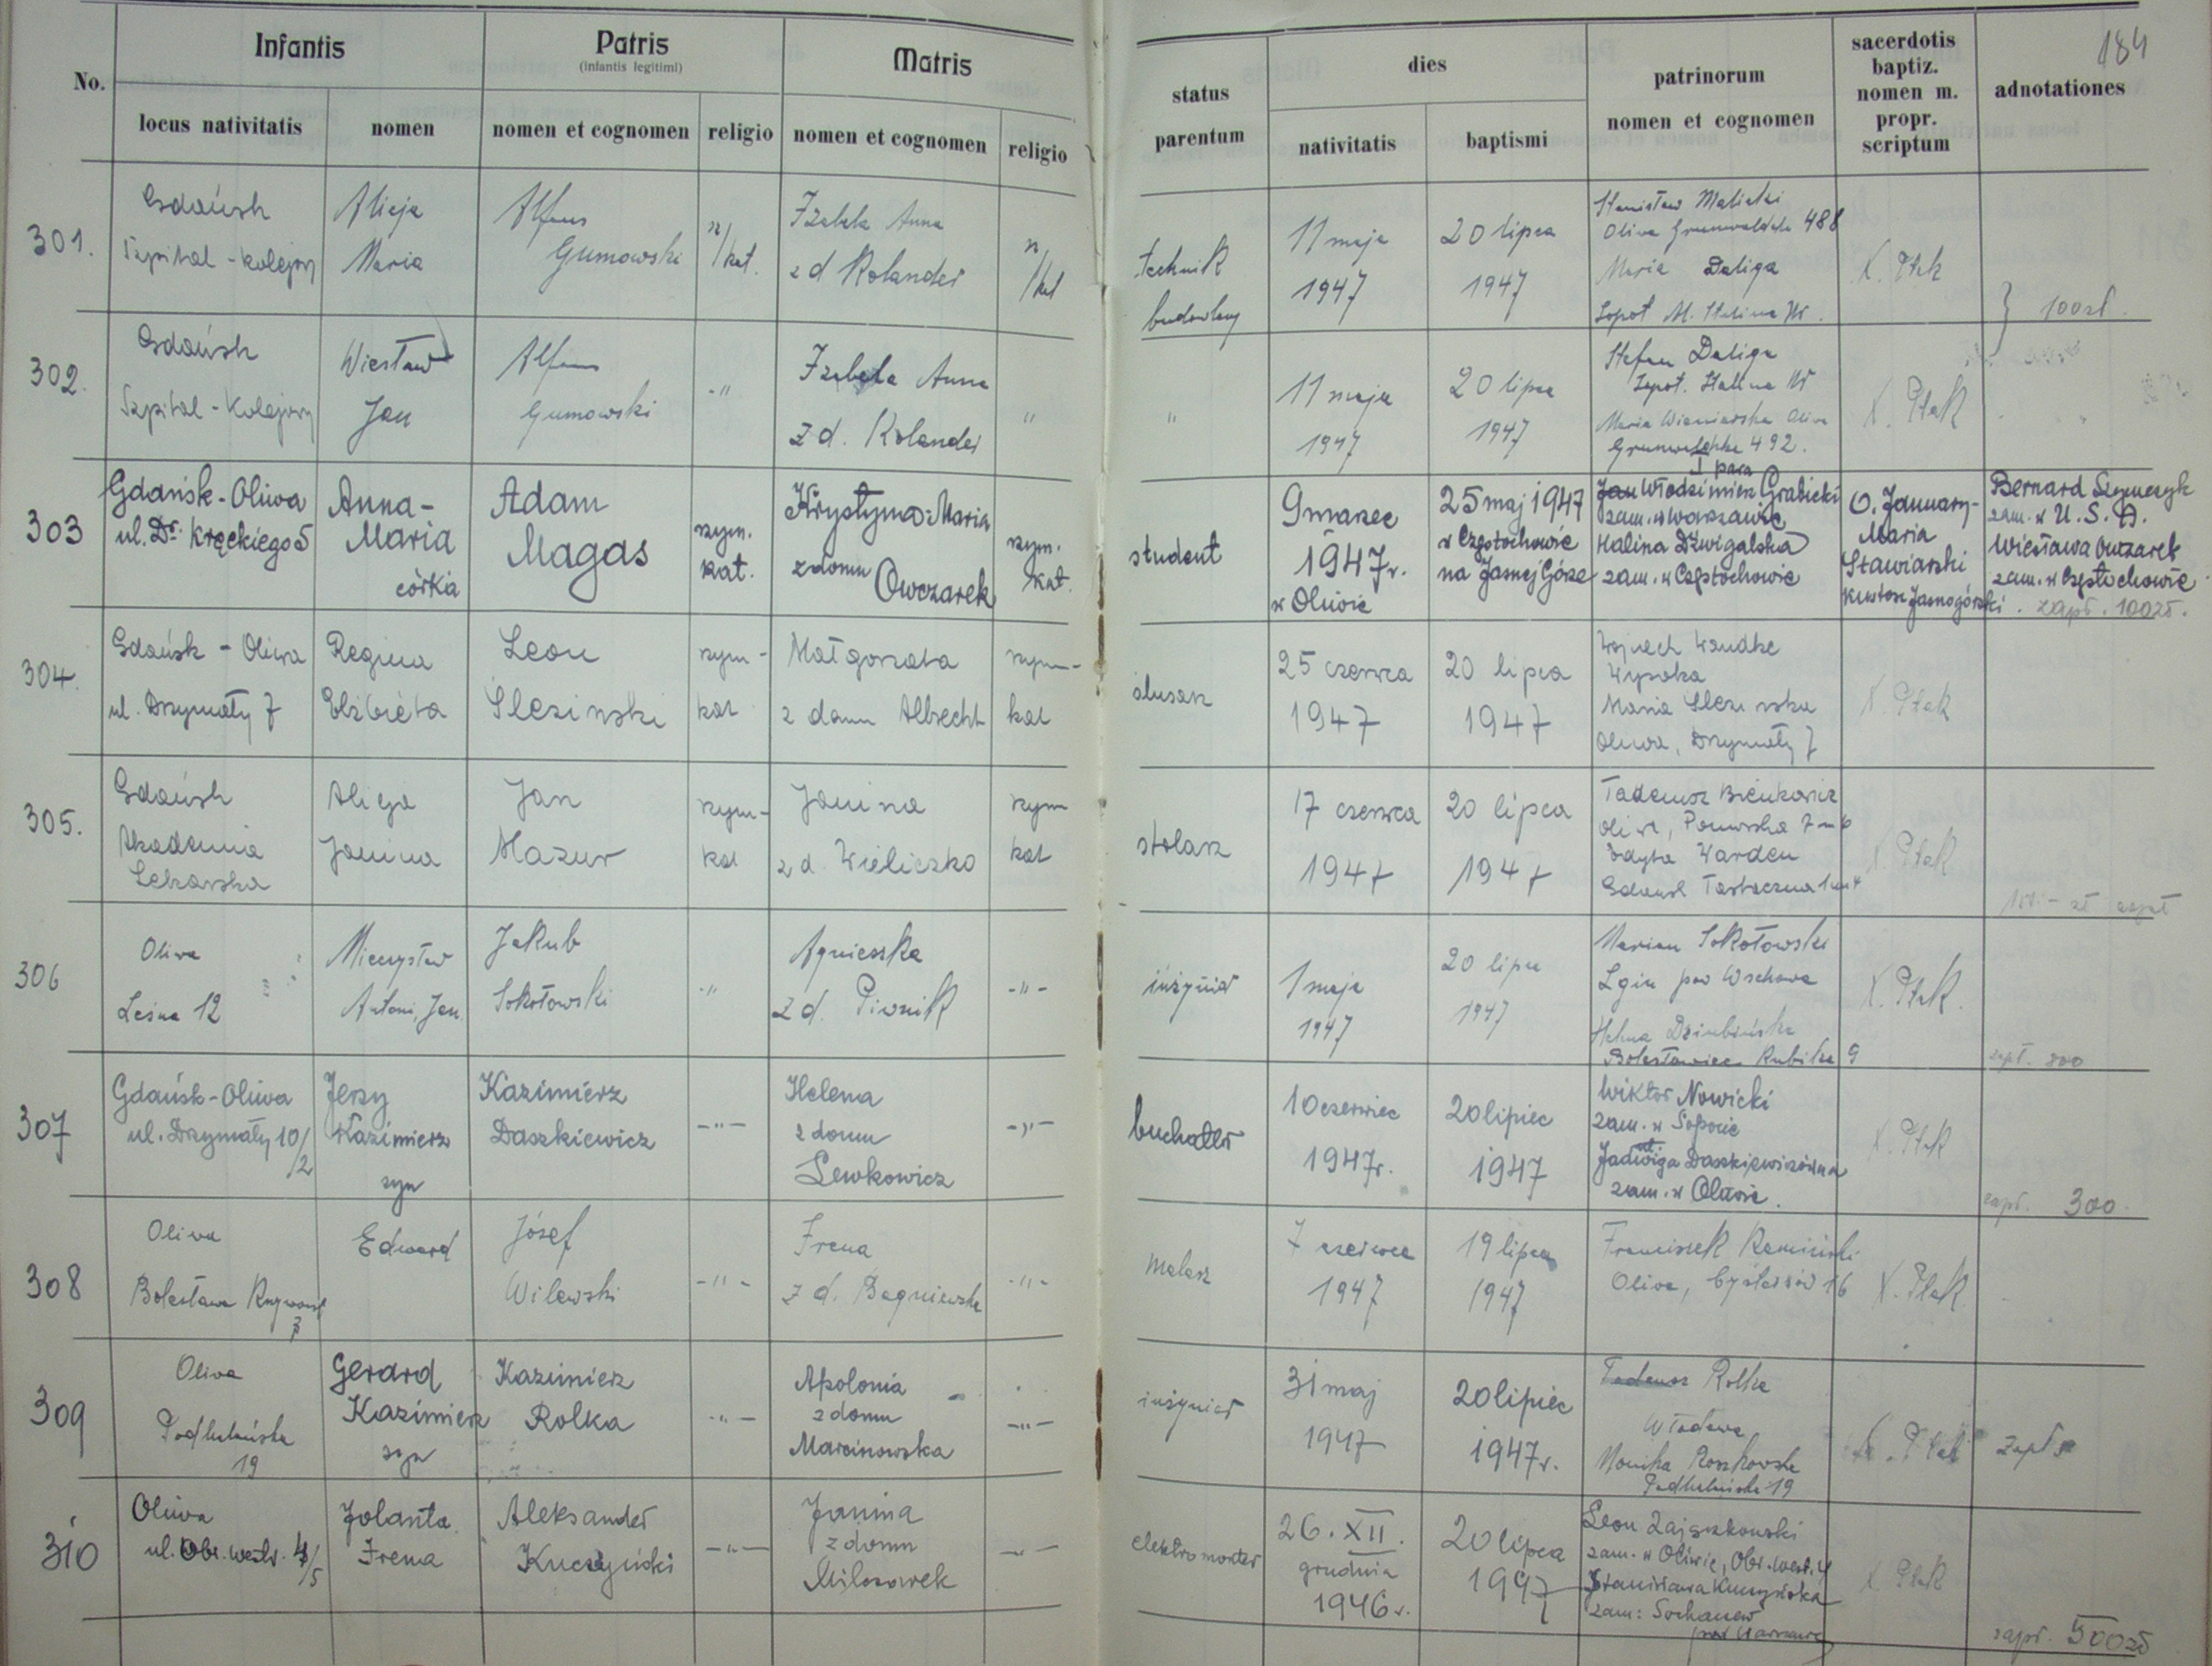 184
No.
Infantis
Patris
(infantis legitimi)
Matris
status
parentum
dies
patrinorum
nomen et cognomen
sacerdotis
baptiz.
nomen m.
propr.
scriptum
adnotationes
locus nativitatis
nomen
nomen et cognomen
religio
nomen et cognomen
religio
nativitatis
baptismi
301.
Gdańsk
Szpital - kolejowy
Alicja
Maria
Alfons
Gumowski
rz/kat.
Izabela Anna
z d Rolander
rz/kat
technik
budowlany
11 maja
1947
20 lipca
1947
Stanisław Malicki
Oliwa Grunwaldzka 488
Maria Daliga
Sopot Al. Stalina
X. Ptak
} 100 zł.
302.
Gdańsk
Szpital - Kolejowy
Wiesław
Jan
Alfons
Gumowski
-"
Izabela Anna
z d. Rolander
"
"
11 maja
1947
20 lipca
1947
Stefan Daliga
Sopot. Stalina
Maria Wieniarska Oliwa
Grunwaldzka 492.
X. Ptak
303
Gdańsk-Oliwa
ul. Dr. Kręckiego 5
Anna-
Maria
córka
Adam
Magas
rzym.
kat.
Krystyna-Maria
z domu
Owczarek
rzym.
kat.
student
9 marzec
1947 r.
w Oliwie
25 maj 1947
w Częstochowie
na Jasnej Górze
I para
Jan Włodzimierz Grabicki
zam. w Warszawie
Halina Dźwigalska
zam. w Częstochowie
O. January-
Maria
Stawiarski
kustosz Jasnogórski.
Bernard Szymczyk
zam. w U.S.A.
Wiesława Owczarek
zam. w Częstochowie
zapł. 100 zł.
304.
Gdańsk - Oliwa
ul. Drzymały 7
Regina
Elżbieta
Leon
Ślesinski
rzym-
kat
Małgorzata
z domu Albrecht
rzym-
kat
ślusarz
25 czerwca
1947
20 lipca
1947
Wojciech Wandke
Wysoka
Maria Slesinska
Oliwa, Drzymały 7
X. Ptak
305.
Gdańsk
Akademia
Lekarska
Alicja
Janina
Jan
Mazur
rzym-
kat
Janina
z d. Wieliczko
rzym
kat
stolarz
17 czerwca
1947
20 lipca
1947
Tadeusz Bieńkowicz
Edyta Warden
Gdańsk
X. Ptak
100.- zł zapł
306
Oliwa
Leśna 12
Mieczysław
Antoni, Jan
Jakub
Sokołowski
-"
Agnieszka
z d. Piwnik
-"-
inżynier
1 maja
1947
20 lipca
1947
Marian Sokołowski
Lgiń pow Wschowa
Helena Dziubińska
Bolesławiec Kubika 9
X. Ptak.
zapł. 200
307
Gdańsk-Oliwa
ul. Drzymały 10/2
Jerzy
Kazimierz
syn
Kazimierz
Daszkiewicz
-"-
Helena
z domu
Lewkowicz
-"-
buchalter
10 czerwiec
1947 r.
20 lipiec
1947
Wiktor Nowicki
zam. w Sopocie
Jadwiga Daszkiewiczówna
zam. w Oliwie.
X. Ptak
zapł. 300
308
Oliwa
Bolesława Krzywoust
3
Edward
Józef
Wilewski
-"-
Irena
z d. Bagniewska
-"-
malarz
7 czerwca
1947
19 lipca
1947
Franciszek Kamiński
Oliwa, Cystersów 16
X. Ptak
309
Oliwa
Podhalańska
19
Gerard
Kazimierz
syn
Kazimierz
Rolka
-"-
Apolonia
z domu
Marcinowska
-"-
inżynier
31 maj
1947
20 lipiec
1947 r.
Tadeusz Rolka
Włodawa
Monika Roszkowska
Podhalańska 19
X. Ptak
zapł
310
Oliwa
ul. Obr. Westr. 4/5
Jolanta
Irena
Aleksander
Kuczyński
-"-
Janina
z domu
Milczarek
-"-
elektromonter
26. XII.
grudnia
1946 r.
20 lipca
1947
Leon Zajączkowski
zam. w Oliwie, Obr. West. 4
Stanisława Kuczyńska
zam: Sochaczew
pod Warszawą
X. Ptak
zapł. 500 zł